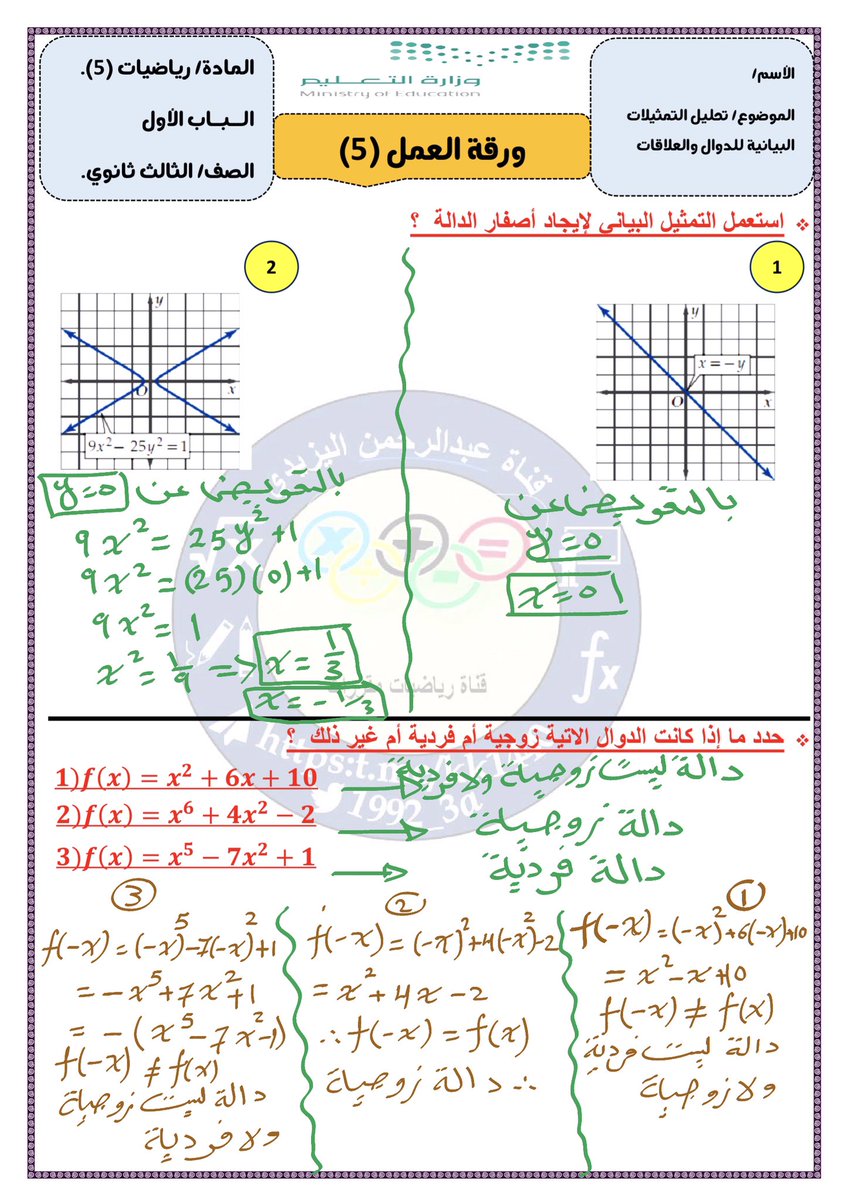 الأسم/
الموضوع/ تحليل التمثيلات
البيانية للدوال والعلاقات
وزارة التعليم
Ministry of Education
ورقة العمل (5)
المادة/ رياضيات (5).
الباب الأول
الصف/ الثالث ثانوي.
❖ استعمل التمثيل البياني لإيجاد أصفار الدالة ؟
1
y
x = −y
O
x
بالتعويض عن
y = 0
x = 0
2
y
O
x
9x² − 25y² = 1
بالتعويض عن y=0
9x² = 25y² + 1
9x² = (25)(0)+1
9x² = 1
x² = 1/9 => x = 1/3
x = -1/3
قناة عبدالرحمن اليزيدي
fx
❖ حدد ما إذا كانت الدوال الاتية زوجية أم فردية أم غير ذلك ؟
1)f(x) = x² + 6x + 10
دالة ليست زوجية ولا فردية
2)f(x) = x⁶ + 4x² − 2
دالة زوجية
3)f(x) = x⁵ − 7x² + 1
دالة فردية
1992_3a
1
f(-x) = (-x)²+6(-x)+10
= x²-x+10
f(-x) ≠ f(x)
دالة ليست فردية
ولا زوجية
2
f(-x) = (-x)²+4(-x)²-2
= x²+4x-2
∴ f(-x) = f(x)
∴ دالة زوجية
3
f(-x) = (-x)⁵-7(-x)²+1
= -x⁵+7x²+1
= -(x⁵-7x²-1)
f(-x) ≠ f(x)
دالة ليست زوجية
ولا فردية